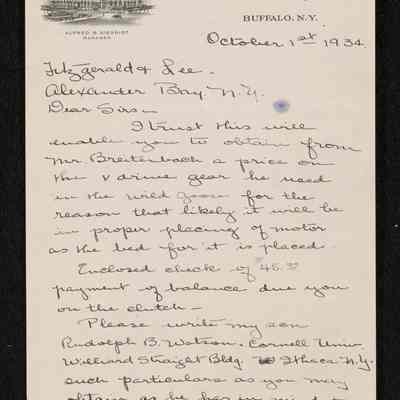 ALFRED B. SIEGRIST
MANAGER
BUFFALO, N.Y.
October 1st 1934.
Fitzgerald & Lee.
Alexander Bay, N.Y.
Dear Sirs—
I trust this will
enable you to obtain from
Mr Breitenbach a price on
the v drive gear he used
in the wild goose for the
reason that likely it will be
in proper placing of motor
as the bed for it is placed.
Enclosed check of $45.00
payment of balance due you
on the clutch—
Please write my son
Rudolph B. Watson. Cornell Univ.
Williard Straight Bldg. Ithaca N.Y.
such particulars as you may
obtain as he has in mind